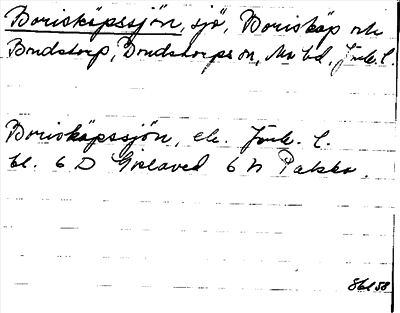 Boriskäpssjön, sjö, Boriskäp och
Bondstorp, Bondstorps sn, Mo hd, Jönk. l.
Boriskäpssjön, ek. Jönk. l.
bl. 6 D Gislaved 6 h